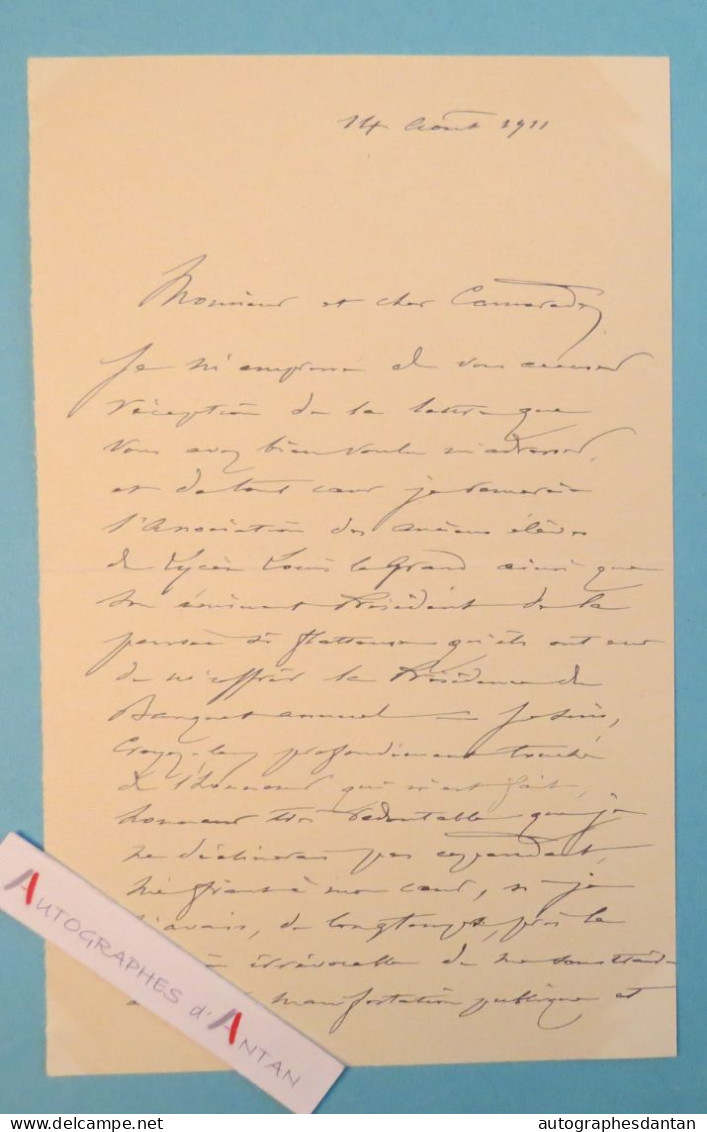 14 Août 1911
Monsieur et cher Camarade,
Je m'empresse de vous accuser
réception de la lettre que
vous avez bien voulu m'adresser,
et de tout cœur je remercie
l'Association des anciens élèves
du Lycée Louis le Grand ainsi que
son éminent Président de la
pensée si flatteuse qu'ils ont eue
de m'offrir la Présidence du
Banquet annuel = Je suis,
croyez-le, profondément touché
de l'honneur qui m'est fait,
honneur très redoutable que je
ne déclinerais pas cependant,
me fiant à mon cœur, si je
n'avais, de longtemps, pris la
irrévocable de me soustraire
manifestation publique et
AUTOGRAPHES d'ANTAN
DELCAMPE.NET
autographesdantan